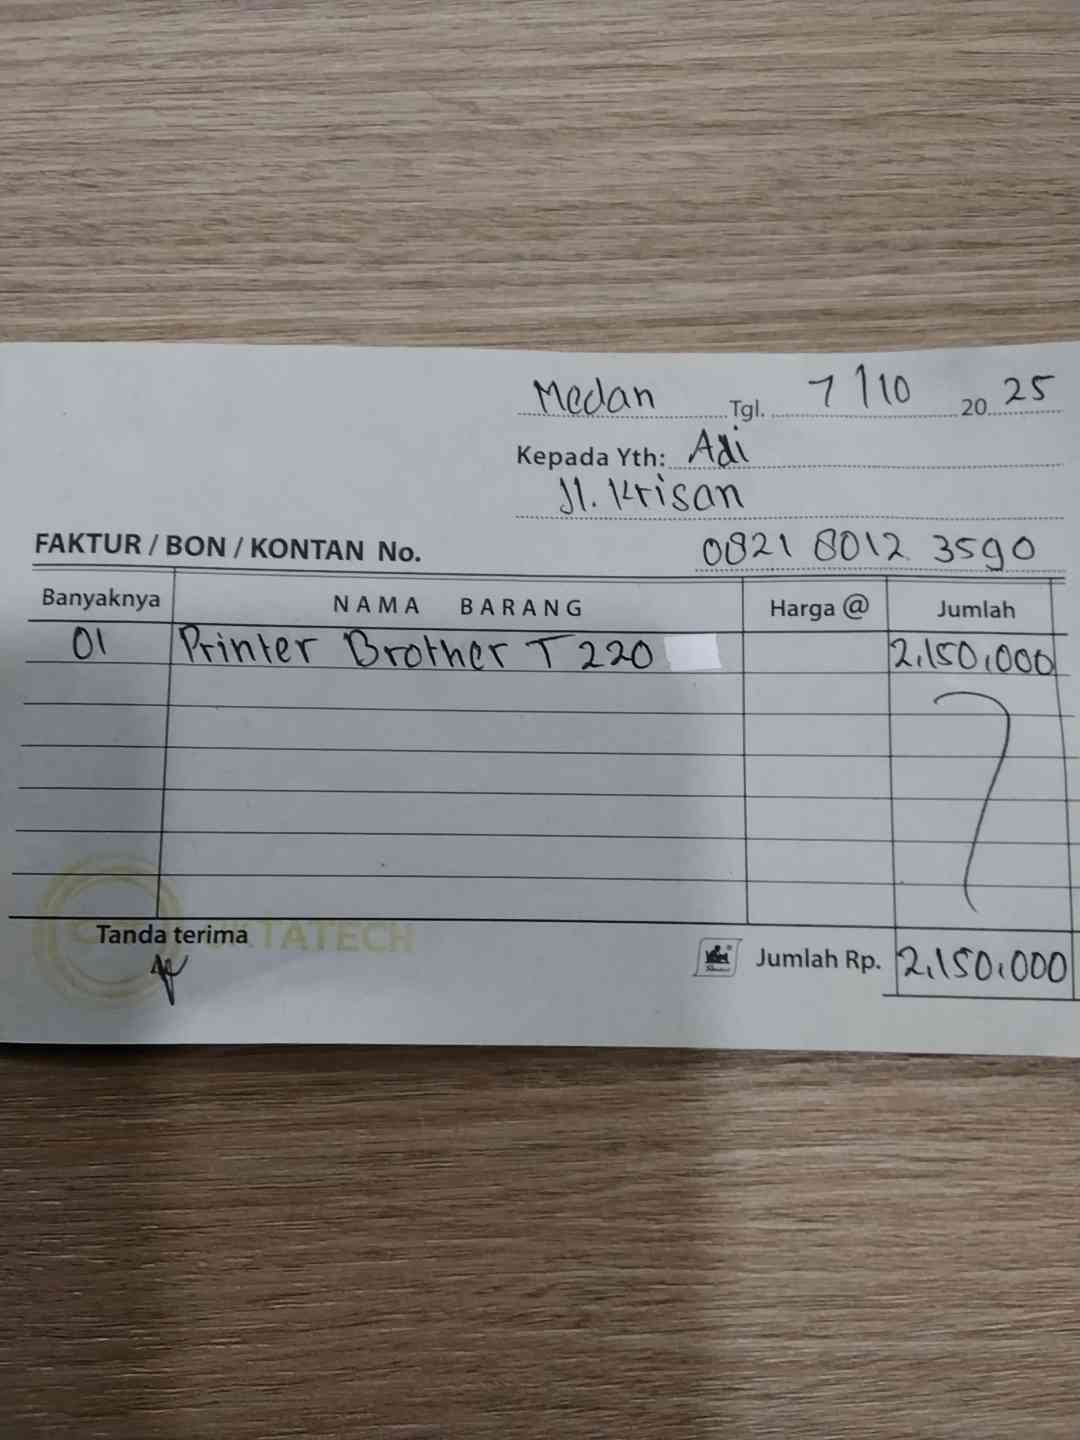 Medan Tgl. 7/10 2025
Kepada Yth: Adi
Jl. Krisan
FAKTUR / BON / KONTAN No. 0821 8012 3590
Banyaknya NAMA BARANG Harga @ Jumlah
01 Printer Brother T 220 2.150.000
Tanda terima
Jumlah Rp. 2.150.000